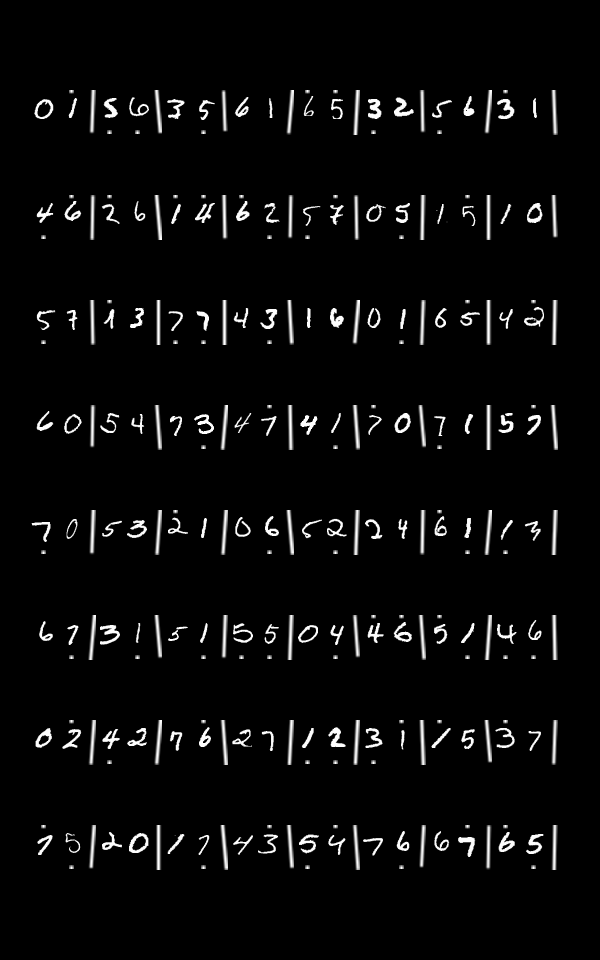 0 1 | 5 6 | 3 5 | 6 1 | 6 5 | 3 2 | 5 6 | 3 1 |
4 6 | 2 6 | 1 4 | 6 2 | 5 7 | 0 5 | 1 5 | 1 0 |
5 7 | 1 3 | 7 7 | 4 3 | 1 6 | 0 1 | 6 5 | 4 2 |
6 0 | 5 4 | 7 3 | 4 7 | 4 1 | 7 0 | 7 1 | 5 7 |
7 0 | 5 3 | 2 1 | 0 6 | 5 2 | 2 4 | 6 1 | 1 3 |
6 7 | 3 1 | 5 1 | 5 5 | 0 4 | 4 6 | 5 1 | 4 6 |
0 2 | 4 2 | 7 6 | 2 7 | 1 2 | 3 1 | 1 5 | 3 7 |
7 5 | 2 0 | 1 7 | 4 3 | 5 4 | 7 6 | 6 7 | 6 5 |